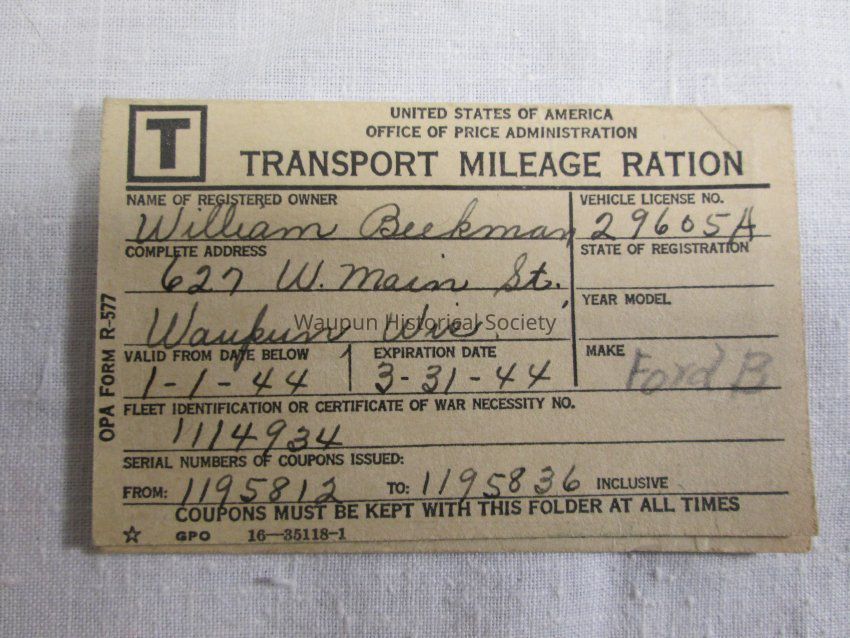 T
UNITED STATES OF AMERICA
OFFICE OF PRICE ADMINISTRATION
TRANSPORT MILEAGE RATION
NAME OF REGISTERED OWNER
William Beekman
VEHICLE LICENSE NO.
29605A
COMPLETE ADDRESS
627 W. Main St.
Waupun Wis.
STATE OF REGISTRATION
YEAR MODEL
MAKE
Ford B
VALID FROM DATE BELOW
1-1-44
EXPIRATION DATE
3-31-44
FLEET IDENTIFICATION OR CERTIFICATE OF WAR NECESSITY NO.
1114934
SERIAL NUMBERS OF COUPONS ISSUED:
FROM: 1195812 TO: 1195836 INCLUSIVE
COUPONS MUST BE KEPT WITH THIS FOLDER AT ALL TIMES
GPO 16—35118-1
OPA FORM R-577
Waupun Historical Society